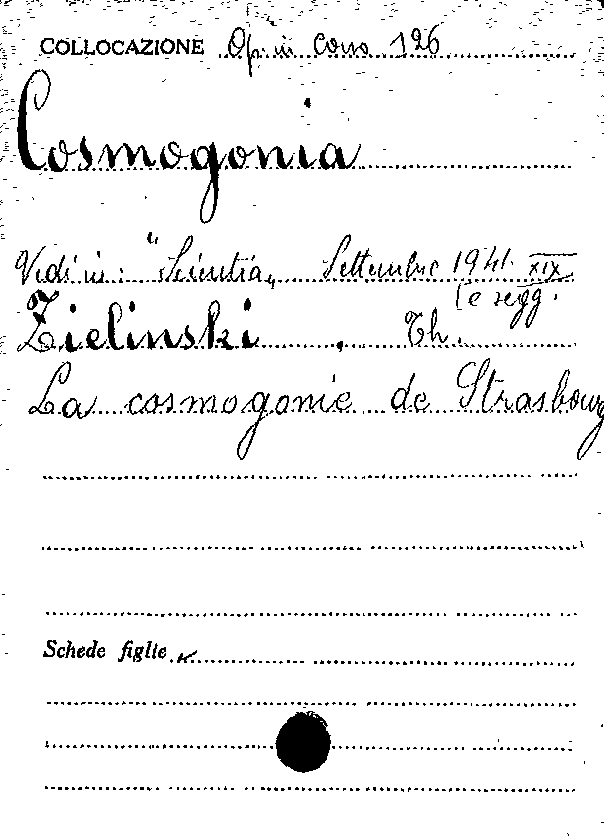 COLLOCAZIONE Op. in Corso 126
Cosmogonia
Vedi in: "Scientia„ Settembre 1941. XIX
(e segg.
Zielinski, Th.
La cosmogonie de Strasbourg
Schede figlie